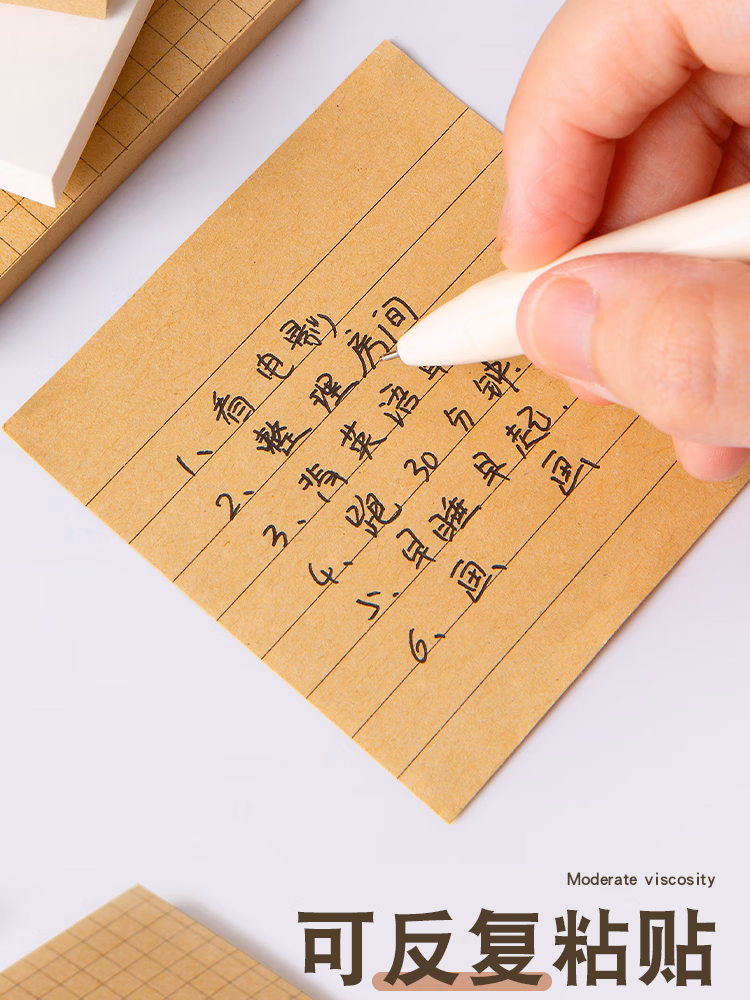 1、看电影
2、整理房间
3、背英语单
4、跑30分钟.
5、早睡早起.
6、画画
Moderate viscosity
可反复粘贴